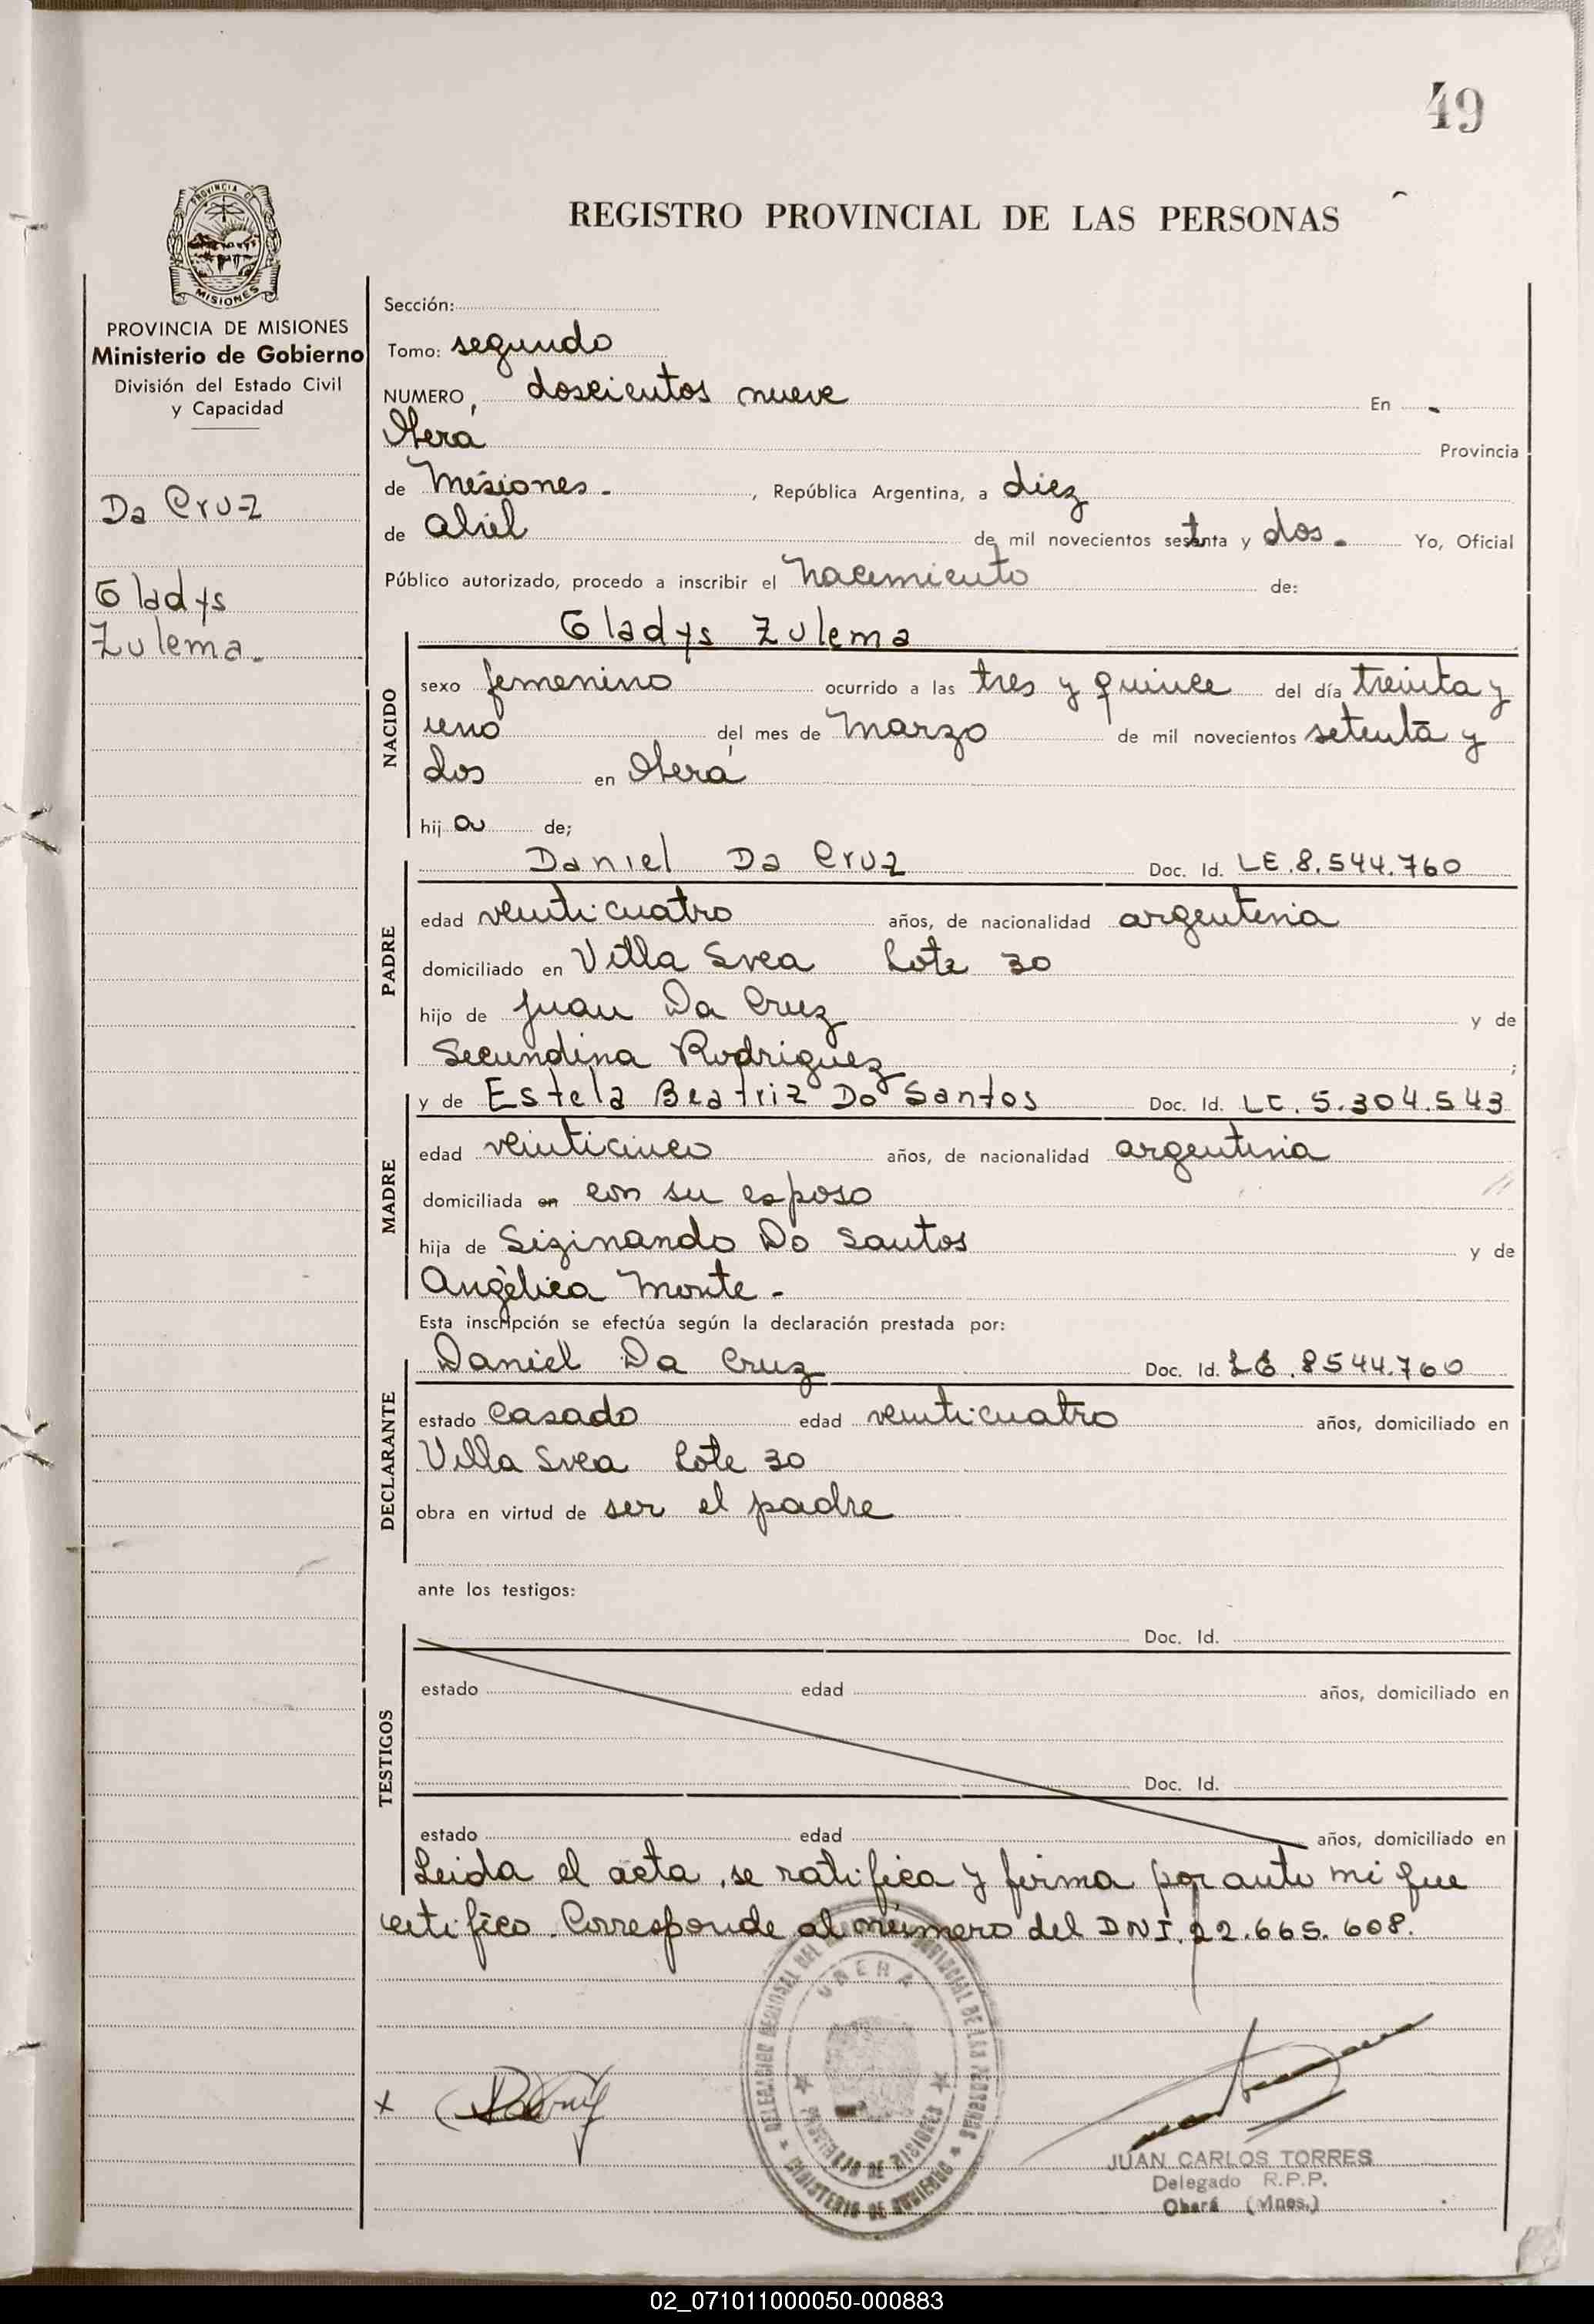 49
PROVINCIA DE
MISIONES
REGISTRO PROVINCIAL DE LAS PERSONAS
PROVINCIA DE MISIONES
Ministerio de Gobierno
División del Estado Civil
y Capacidad
Da Cruz
Gladys
Zulema.
Sección:
Tomo: segundo
NUMERO, doscientos nueve En
Oberá Provincia
de Misiones. , República Argentina, a diez
de abril de mil novecientos setenta y dos. Yo, Oficial
Público autorizado, procedo a inscribir el nacimiento de:
Gladys Zulema
NACIDO
sexo femenino ocurrido a las tres y quince del día treinta y
uno del mes de marzo de mil novecientos setenta y
dos en Oberá
hija de;
Daniel Da Cruz Doc. Id. LE.8.544.760
PADRE
edad veinticuatro años, de nacionalidad argentina
domiciliado en Villa Svea Lote 30
hijo de Juan Da Cruz y de
Secundina Rodriguez ;
y de Estela Beatriz Do Santos Doc. Id. LC. 5.304.543
MADRE
edad veinticinco años, de nacionalidad argentina
domiciliada en con su esposo
hija de Sizinando Do Santos y de
Angélica Monte.
Esta inscripción se efectúa según la declaración prestada por:
Daniel Da Cruz Doc. Id. LE.8544.760
DECLARANTE
estado casado edad veinticuatro años, domiciliado en
Villa Svea Lote 30
obra en virtud de ser el padre
ante los testigos:
TESTIGOS
Doc. Id.
estado edad años, domiciliado en
Doc. Id.
estado edad años, domiciliado en
Leida el acta, se ratifica y firma por ante mi que
certifico. Corresponde al número del DNI. 22.665.608.
DELEGACION REGIONAL DEL REGISTRO PROVINCIAL DE LAS PERSONAS
OBERA
PROVINCIA DE MISIONES
MINISTERIO DE GOBIERNO
x
JUAN CARLOS TORRES
Delegado R.P.P.
Oberá (Mnes.)
02_071011000050-000883